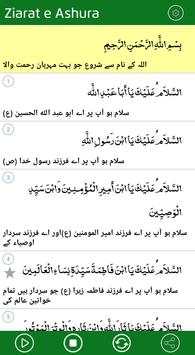 Ziarat e Ashura
بِسْمِ اللّٰهِ الرَّحْمٰنِ الرَّحِيْمِ
اللہ کے نام سے شروع جو بہت مہربان رحمت والا
1
السَّلَامُ عَلَيْكَ يَا أَبَا عَبْدِ اللّٰهِ
سلام ہو آپ پر اے ابو عبد اللہ الحسین (ع)
2
السَّلَامُ عَلَيْكَ يَا ابْنَ رَسُولِ اللّٰهِ
سلام ہو آپ پر اے فرزند رسول خدا (ص)
3
السَّلَامُ عَلَيْكَ يَا ابْنَ أَمِيرِ الْمُؤْمِنِينَ وَابْنَ سَيِّدِ
الْوَصِيِّينَ
سلام ہو آپ پر اے فرزند امیر المومنین (ع)اور اے فرزند سردار
اوصیاء کے
4
السَّلَامُ عَلَيْكَ يَا ابْنَ فَاطِمَةَ سَيِّدَةِ نِسَاءِ الْعَالَمِينَ
سلام ہو آپ پر اے فرزند فاطمہ زہرا (ع) جو سردار ہیں تمام
خواتین عالم کی
5
السَّلَامُ عَلَيْكَ يَا ثَارَ اللّٰهِ وَابْنَ ثَارِهِ وَالْوِتْرَ الْمَوْتُورَ